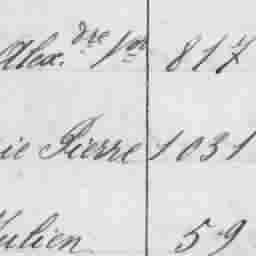 Alex.dre 1er 817
ie Pierre 1031
Julien 59